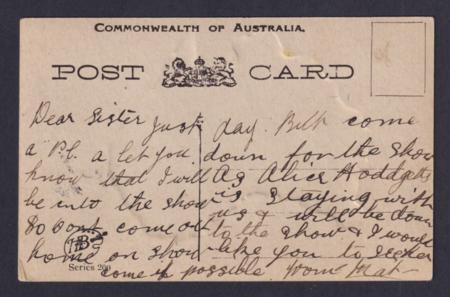 COMMONWEALTH OF AUSTRALIA.
POST CARD
Dear Sister just
a P.C. a let you
know that I will
be into the show
so dont come out
home on show
day. But come
down for the show
As Alice Hodgetts
is staying with
us & will be down
to the show & I would
like you to see her
come if possible from Mat
Series 200